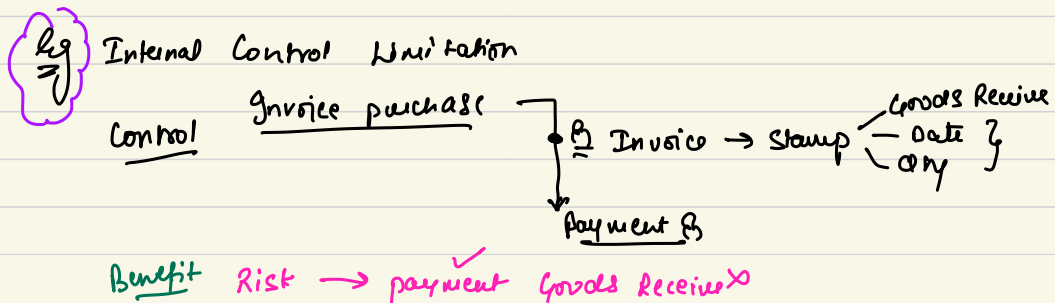 Eg Internal Control Limitation
Invoice purchase
Control
Invoice → Stamp
Goods Receive
Date }
Qty
Payment
Benefit Risk → payment ✓ Goods Receive ×